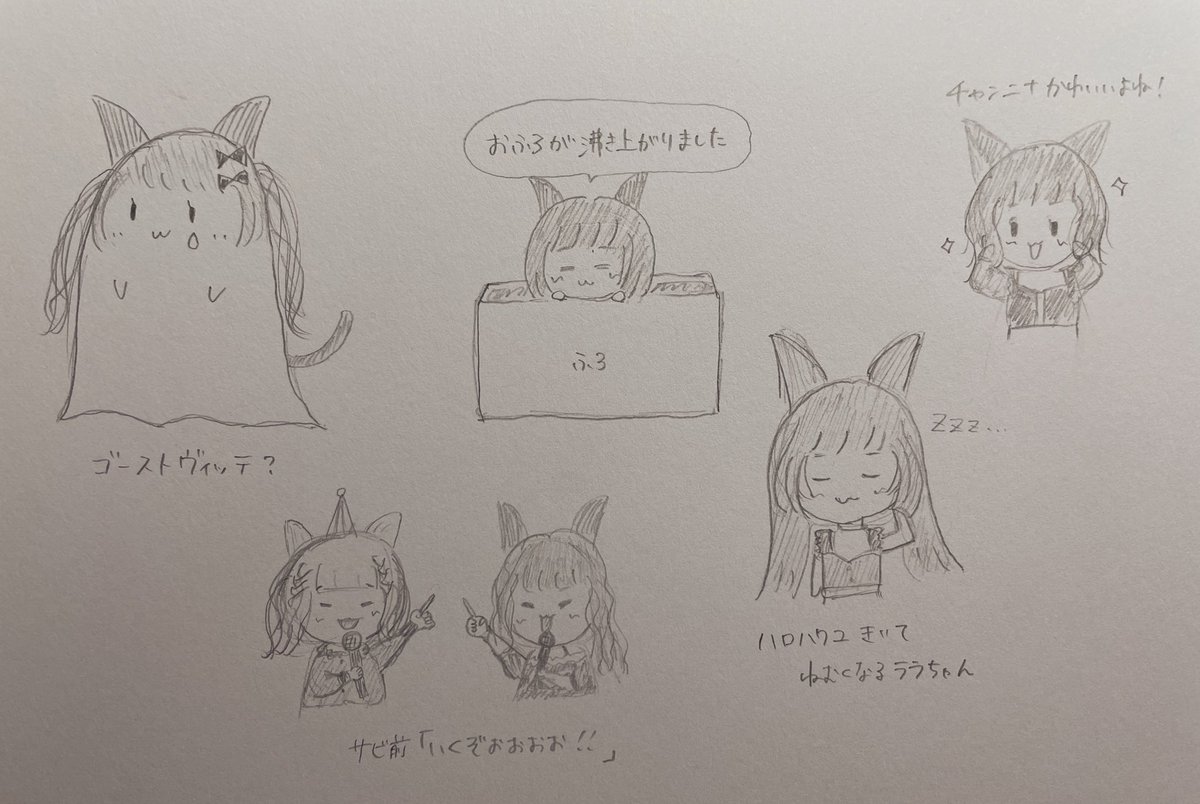 おふろが沸き上がりました
ふろ
チャンニナかわいいよね!
ゴーストヴィッテ?
zzz...
ハロハワユ きいて
ねむくなるララちゃん
サビ前「いくぞおおおお!!」